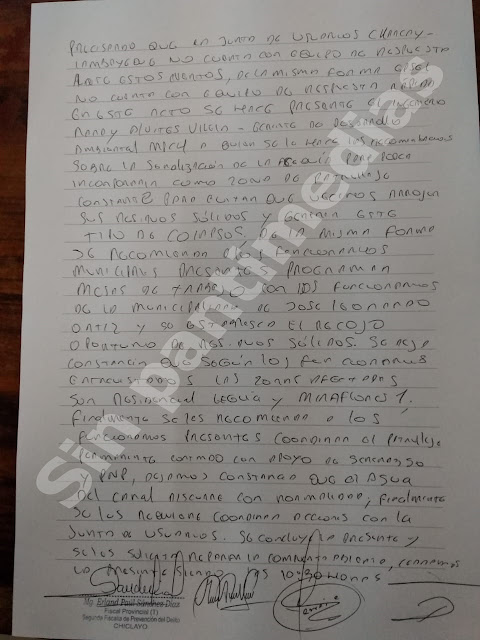 precisando que la Junta de Usuarios Chancay-
Lambayeque no cuenta con equipo de respuesta
ante estos eventos, de la misma forma
no cuenta con equipo de respuesta rápida
en este acto se hace presente el ingeniero
Gerente de Desarrollo
Ambiental a quien se le hace las recomendaciones
sobre la señalización de la acequia para poder
incorporarla como zona de patrullaje
constante para evitar que vecinos arrojen
sus residuos sólidos y generen este
tipo de colapsos, de la misma forma
se recomienda a los funcionarios
municipales presentes programar
mesas de trabajo con los funcionarios
de la municipalidad de Jose Leonardo
Ortiz y se establesca el recojo
oportuno de residuos sólidos. Se deja
constancia que según los funcionarios
entrevistados las zonas afectadas
son Residencial Leguia y Miraflores 1,
finalmente se les recomienda a los
funcionarios presentes coordinar el patrullaje
permanente contando con apoyo de serenazgo
y PNP, dejamos constancia que el agua
del canal discurre con normalidad; finalmente
se les requiere coordinar acciones con la
Junta de Usuarios. Se concluye la presente y
se les solicita reparar la compuerta abierta, cerramos
la presente siendo las 10:30 horas
Mg. Erland Paúl Sánchez Díaz
Fiscal Provincial (T)
Segunda Fiscalía de Prevención del Delito
CHICLAYO
Sin Dantimedias